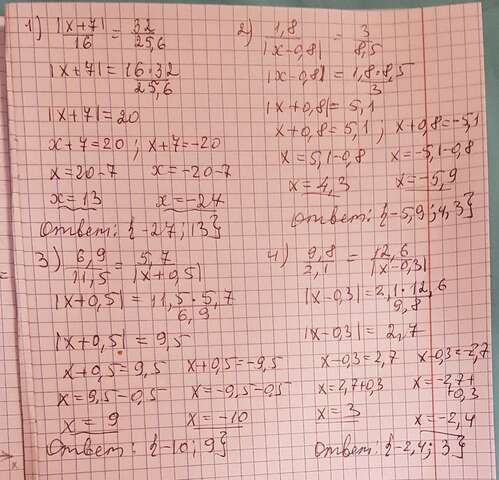 1) |x+7|/16 = 32/25,6
|x+7| = 16·32/25,6
|x+7| = 20
x+7=20 ; x+7=-20
x=20-7 x=-20-7
x=13 x=-27
Ответ: {-27; 13}
2) 1,8/|x-0,8| = 3/8,5
|x-0,8| = 1,8·8,5/3
|x+0,8| = 5,1
x+0,8=5,1 ; x+0,8=-5,1
x=5,1-0,8 x=-5,1-0,8
x=4,3 x=-5,9
Ответ: {-5,9; 4,3}
3) 6,9/11,5 = 5,7/|x+0,5|
|x+0,5| = 11,5·5,7/6,9
|x+0,5| = 9,5
x+0,5=9,5 x+0,5=-9,5
x=9,5-0,5 x=-9,5-0,5
x=9 x=-10
Ответ: {-10; 9}
4) 9,8/2,1 = 12,6/|x-0,3|
|x-0,3| = 2,1·12,6/9,8
|x-0,3| = 2,7
x-0,3=2,7 x-0,3=-2,7
x=2,7+0,3 x=-2,7+
+0,3
x=3 x=-2,4
Ответ: {-2,4; 3}
x